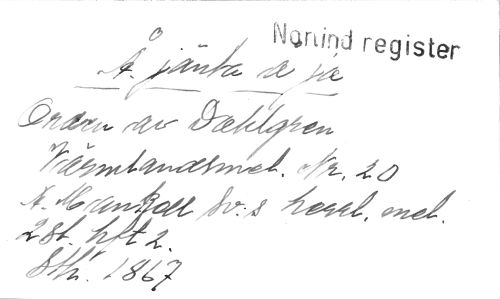 Nonind register
Å jänta å ja
Orden av Dahlgren
Värmlandsmel. Nr. 20
A. Mankell Sv:s herrl. mel.
2 st. hft 2.
Sth. 1867